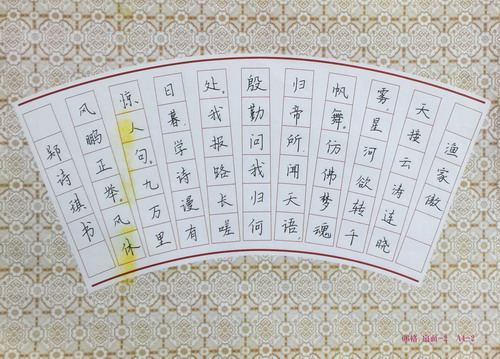 渔家傲
天接云涛连晓
雾星河欲转千
帆舞。仿佛梦魂
归帝所。闻天语。
殷勤问我归何
处。我报路长嗟
日暮。学诗谩有
惊人句。九万里
风鹏正举。风休
郑诗琪书
扇面-2 A4-2